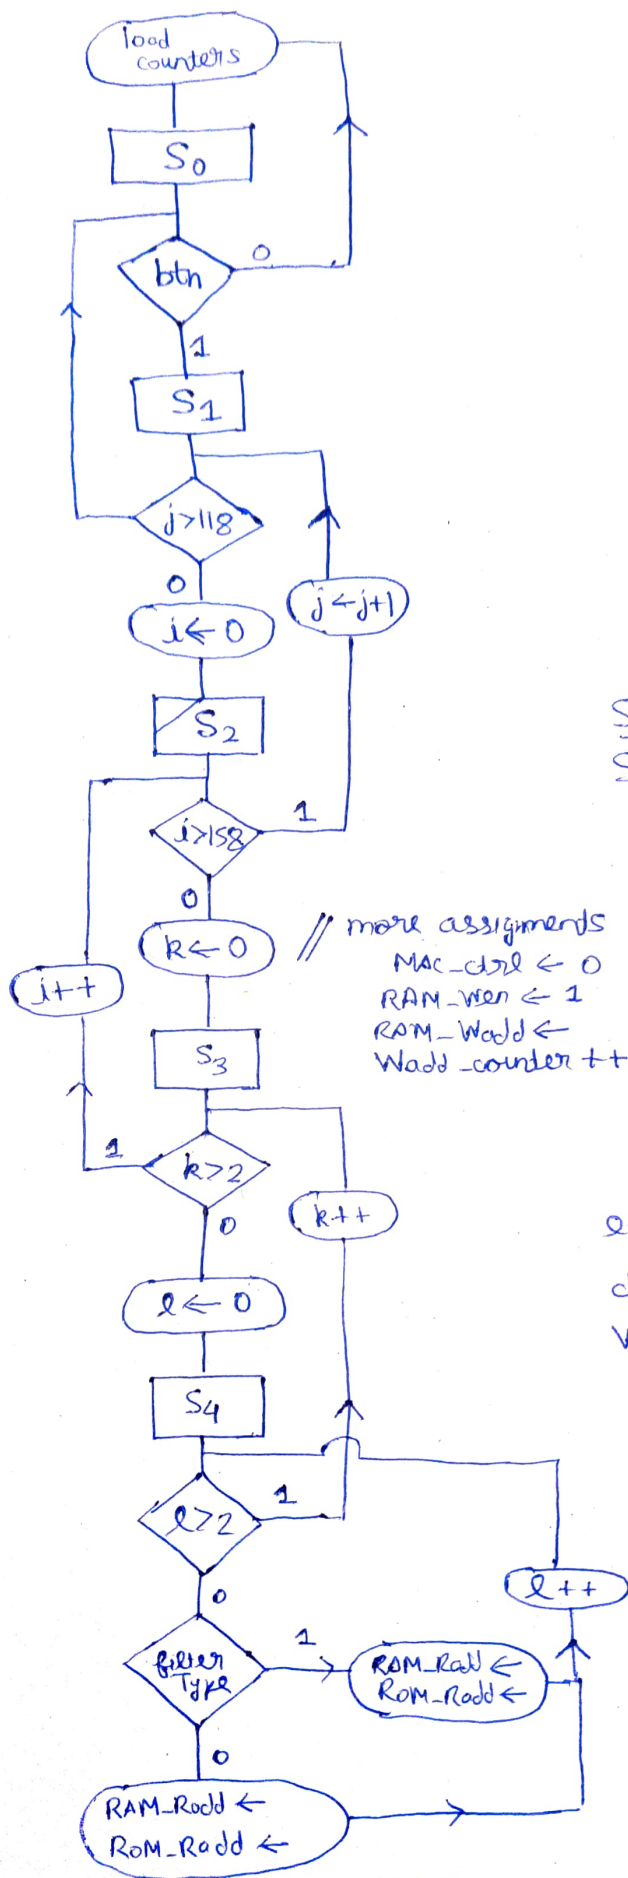 load
counters
S0
btn
0
1
S1
j>118
0
j←j+1
i←0
S2
i>158
1
0
k←0
// more assignments
MAC_ctrl ← 0
RAM_Wen ← 1
RAM_Wadd ←
Wadd_counter ++
i++
S3
1
k>2
0
k++
l←0
S4
l>2
1
0
l++
filter
Type
1
RAM_Radd ←
ROM_Radd ←
0
RAM_Radd ←
ROM_Radd ←